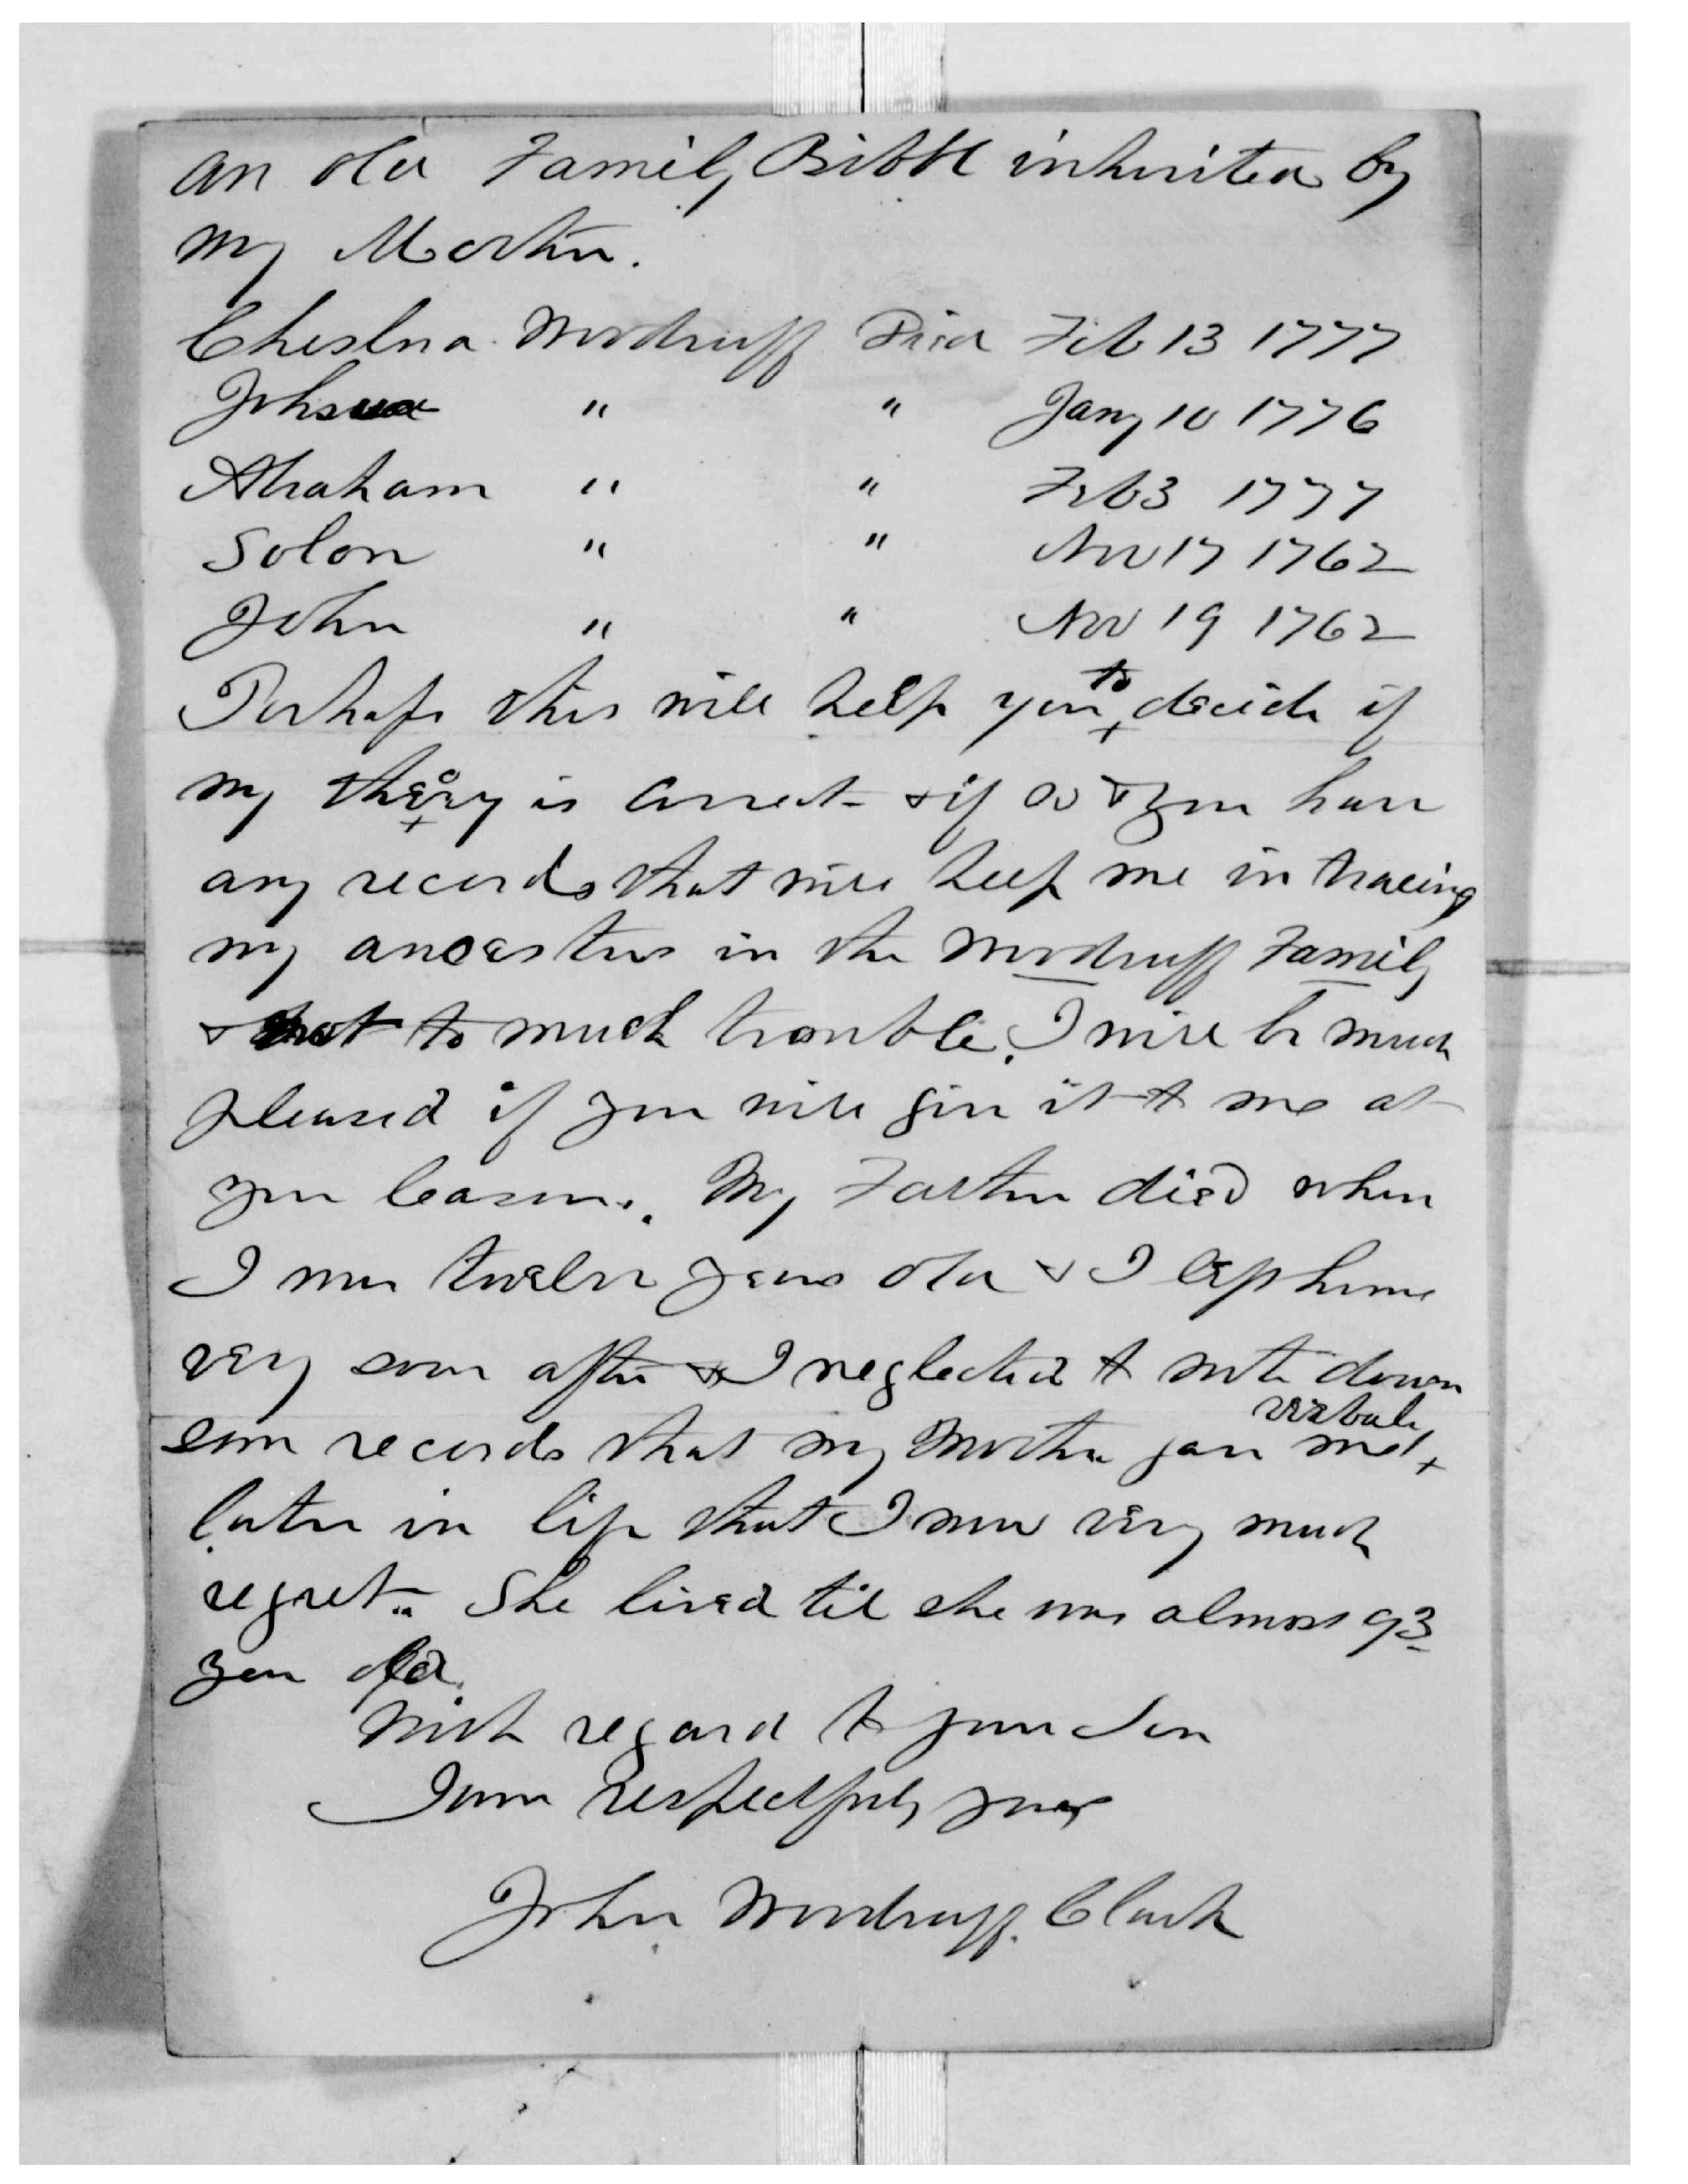 an old Family Bible inherited by
my Mother.
Woodruff Died Feb 13 1777
Joshua " " Jany 10 1776
Abraham " " Feb 3 1777
Solon " " Nov 17 1762
John " " Nov 19 1762
Perhaps this will help you to decide if
my theory is correct & if so & you have
any records that will help me in tracing
my ancestors in the Woodruff Family
& not to much trouble. I will be much
pleased if you will give it to me at
your leasure. My Father died when
I was twelve years old & I left home
very soon after & I neglected to note down
some records that my Mother gave me verbaly
later in life that I now very much
regret. She lived til she was almost 93
year old.
With regard to your Son
I am respectfuly yours
John Woodruff Clark